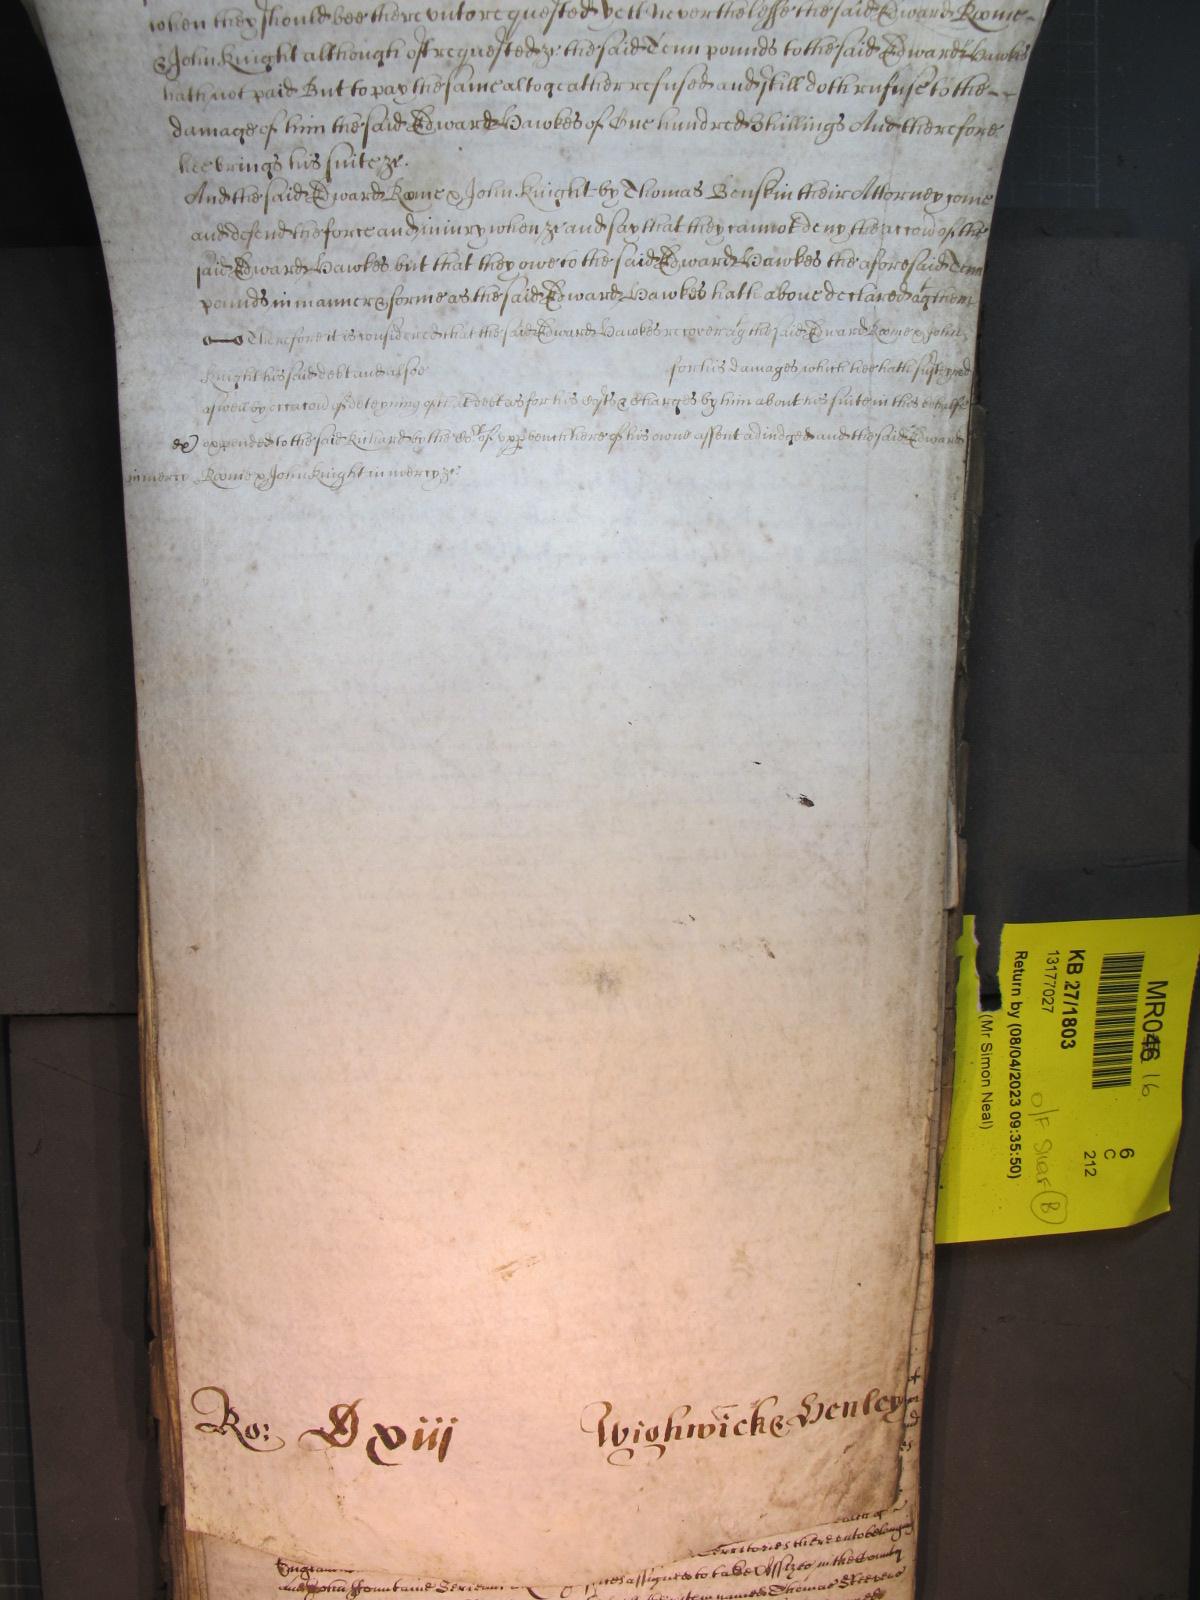 when they should bee there vnto requested yett Neverthelesse the said Edward Roome
& John Knight although oft requested &c the said Tenn pounds to the said Edward Hawkes
hath not paid But to pay the same altogeather refused and still doth refuse to the
damage of him the said Edward Hawkes of One hundred Shillings And therefore
hee brings his suite &c.
And the said Edward Roome & John Knight by Thomas Benskin their Attorney come
and defend the force and iniury when &c and say that they cannot deny the accon of the
said Edward Hawkes but that they owe to the said Edward Hawkes the aforesaid Tenn
pounds in manner & forme as the said Edward Hawkes hath above declared agt them
Therefore it is considered that the said Edward Hawkes recover agt the said Edward Roome & John
Knight his said debt and alsoe for his damages which hee hath susteyned
aswell by occacon of deteyning of that debt as for his costs & charges by him about his suite in this behalfe
expended to the said Richard by the Cort of vpper bench here of his owne assent adiudged and the said Edward
in mercy Roome & John Knight in mercy &c
Ro: D xiij Wighwicke Henley
Territories therevnto belonging
and John Fountaine Serieant assignes to take Assizes in the County
names Thomas Steevens
MR046 16
KB 27/1803
13177027
Return by (08/04/2023 09:35:50)
(Mr Simon Neal)
6
C
212
O/F
B